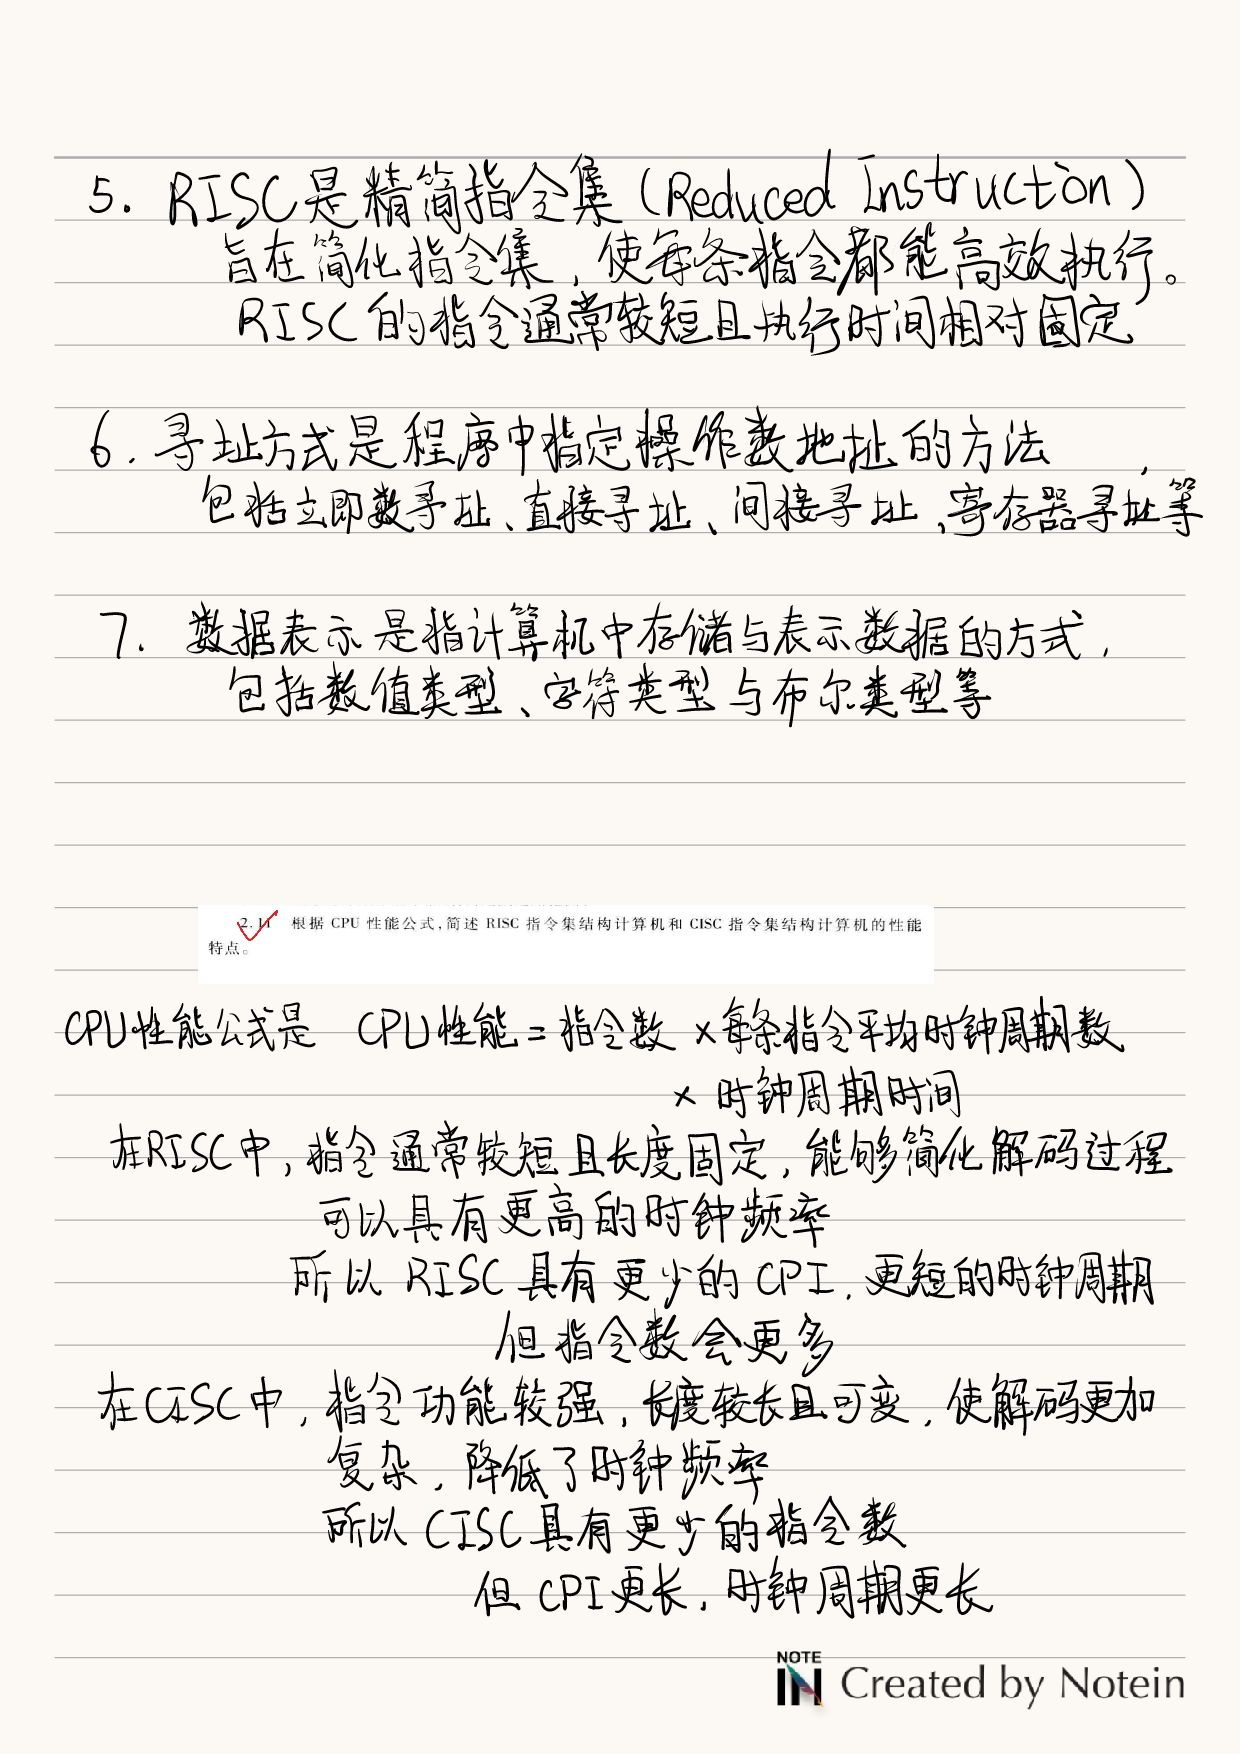 5. RISC是精简指令集（Reduced Instruction）
旨在简化指令集，使每条指令都能高效执行。
RISC的指令通常较短且执行时间相对固定
6. 寻址方式是程序中指定操作数地址的方法，
包括立即数寻址、直接寻址、间接寻址、寄存器寻址等
7. 数据表示是指计算机中存储与表示数据的方式，
包括数值类型、字符类型与布尔类型等
2.11 根据 CPU 性能公式,简述 RISC 指令集结构计算机和 CISC 指令集结构计算机的性能
特点。
CPU性能公式是 CPU性能=指令数×每条指令平均时钟周期数
×时钟周期时间
在RISC中，指令通常较短且长度固定，能够简化解码过程
可以具有更高的时钟频率
所以 RISC 具有更少的 CPI，更短的时钟周期
但指令数会更多
在CISC中，指令功能较强，长度较长且可变，使解码更加
复杂，降低了时钟频率
所以 CISC 具有更少的指令数
但 CPI更长，时钟周期更长
NOTE
IN Created by Notein